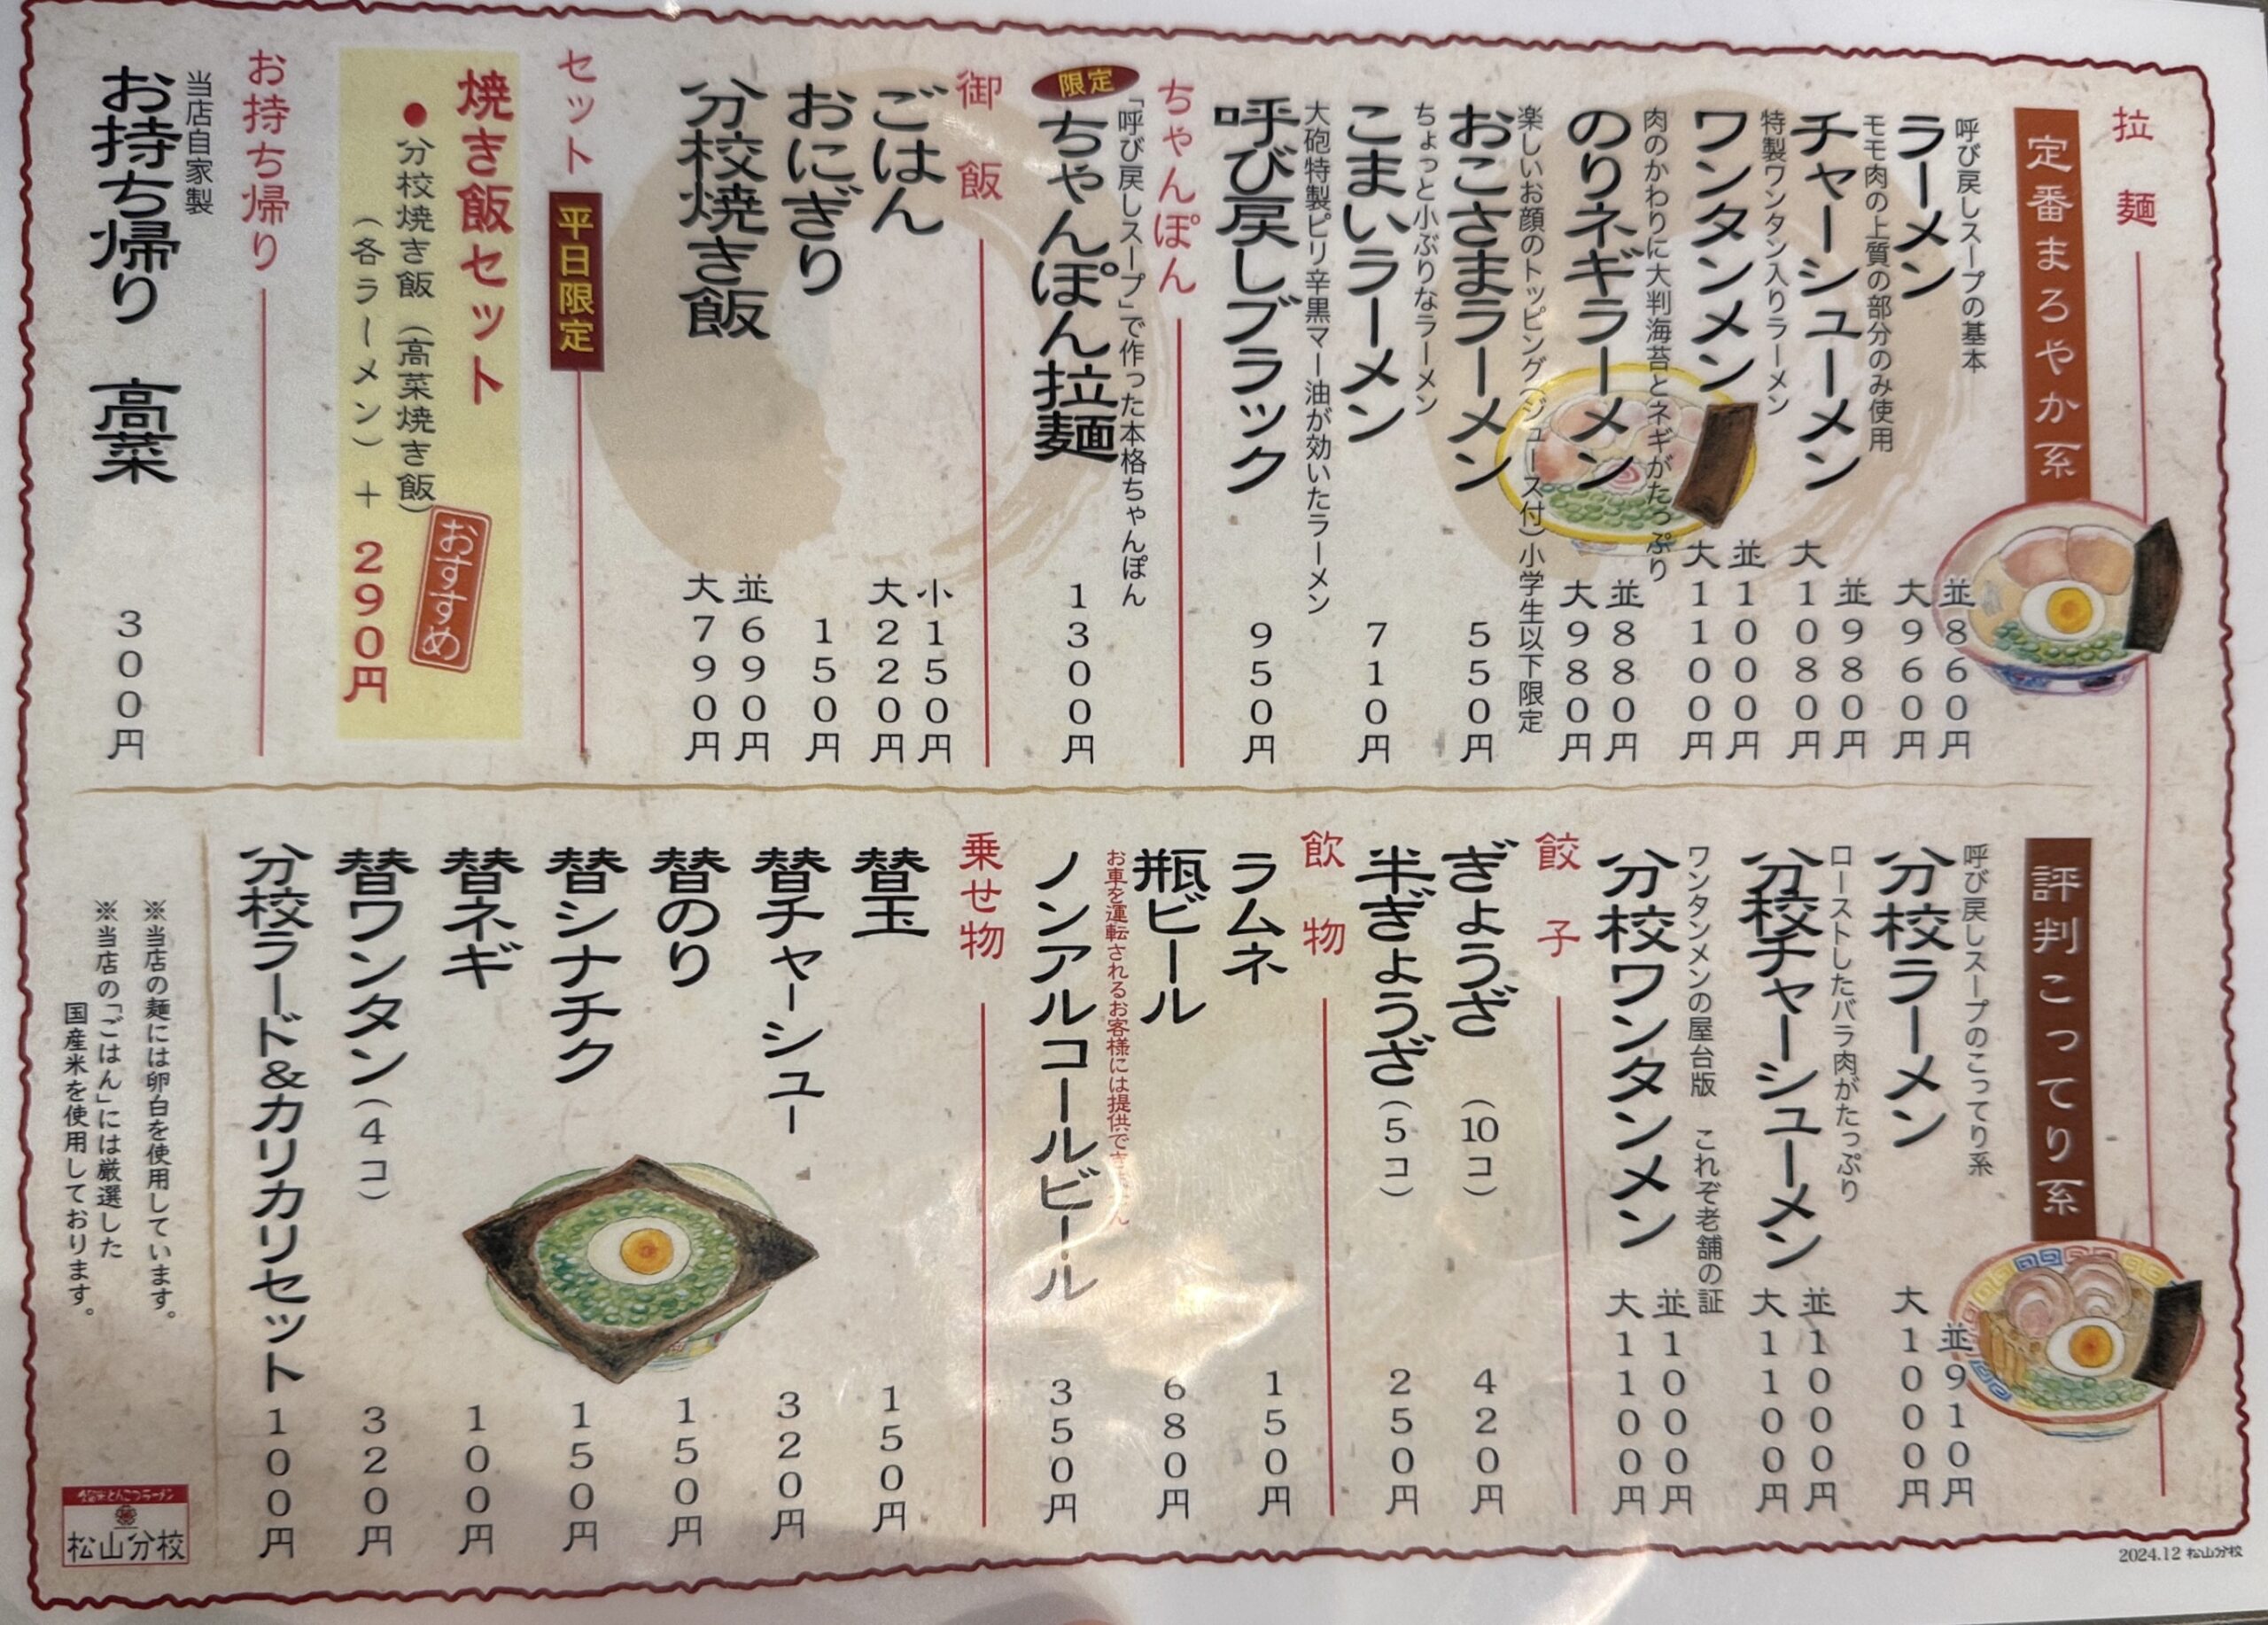 拉麺
定番まろやか系
呼び戻しスープの基本
ラーメン
並860円
大960円
モモ肉の上質の部分のみ使用
チャーシューメン
並980円
大1080円
特製ワンタン入りラーメン
ワンタンメン
並1000円
大1100円
肉のかわりに大判海苔とネギがたっぷり
のりネギラーメン
並880円
大980円
楽しいお顔のトッピング(ジュース付)小学生以下限定
おこさまラーメン
550円
ちょっと小ぶりなラーメン
こまいラーメン
710円
大砲特製ピリ辛黒マー油が効いたラーメン
呼び戻しブラック
950円
ちゃんぽん
限定
「呼び戻しスープ」で作った本格ちゃんぽん
ちゃんぽん拉麺
1300円
御飯
ごはん
小150円
大220円
おにぎり
150円
分校焼き飯
並690円
大790円
セット
平日限定
焼き飯セット
●分校焼き飯(高菜焼き飯)
(各ラーメン)+290円
おすすめ
お持ち帰り
当店自家製
お持ち帰り 高菜
300円
評判こってり系
呼び戻しスープのこってり系
分校ラーメン
並910円
大1000円
ローストしたバラ肉がたっぷり
分校チャーシューメン
並1000円
大1100円
ワンタンメンの屋台版 これぞ老舗の証
分校ワンタンメン
並1000円
大1100円
餃子
ぎょうざ(10コ)
420円
半ぎょうざ(5コ)
250円
飲物
ラムネ
150円
瓶ビール
680円
お車を運転されるお客様には提供でき
ノンアルコールビール
350円
乗せ物
替玉
150円
替チャーシュー
320円
替のり
150円
替シナチク
150円
替ネギ
100円
替ワンタン(4コ)
320円
分校ラード&カリカリセット
100円
※当店の麺には卵白を使用しています。
※当店の「ごはん」には厳選した
国産米を使用しております。
久留米とんこつラーメン
松山分校
2024.12 松山分校